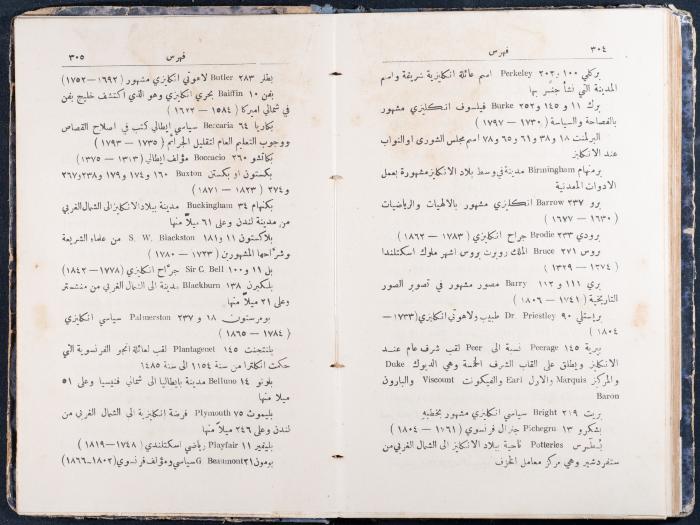 ٣٠٤ فهرس
بركلي ١٠٠ و٢٠٢ Perkeley اسم عائلة انكليزية شريفة واسم
المدينة التي نشأ جنسر بها
برك ١١ و ١٤٥ و ٢٥٢ Burke فيلسوف انكليزي مشهور
بالفصاحة والسياسة (١٧٣٠ — ١٧٩٧)
البرلمنت ١٨ و ٣٨ و٦١ و ٦٥ و ٧٨ اسم مجلس الشورى او النواب
عند الانكليز
برمنهام Birmingham مدينة في وسط بلاد الانكليز مشهورة بعمل
الادوات المعدنية
برو ٢٣٧ Barrow انكليزي مشهور بالالهيات والرياضيات
(١٦٣٠ — ١٦٧٧)
برودي ٢٣٣ Brodie جراح انكليزي (١٧٨٣ — ١٨٦٢)
بروس ٢٧١ Bruce الملك روبرت بروس اشهر ملوك اسكتلندا
(١٢٧٤ — ١٣٢٩)
بري ١١١ و ١١٢ Barry مصور مشهور في تصوير الصور
التاريخية (١٧٤١ — ١٨٠٦)
بريستلي ٩٠ Dr. Priestley طبيب ولاهوتي انكليزي (١٧٣٣—
١٨٠٤)
بيرية ١٤٥ Peerage نسبة الى Peer لقب شرف عام عند
الانكليز ويطلق على القاب الشرف الخمسة وهي الديوك Duke
والمركيز Marquis والارل Earl والفيكونت Viscount والبارون
Baron
بريت ٢١٩ Bright سياسي انكليزي مشهور بخطبه
بشكرو ١٣ Pichegru جنرال فرنسوي (١٧٦١ — ١٨٠٤)
بُسطرس Potteries ناحية ببلاد الانكليز الى الشمال الغربي من
ستفردشير وهي مركز معامل الخزف
فهرس ٣٠٥
بطلر ٢٨٣ Butler لاهوتي انكليزي مشهور (١٦٩٢ — ١٧٥٢)
بفن ١٠ Baiffin بحري انكليزي وهو الذي اكتشف خليج بفن
في شمالي اميركا (١٥٨٤ — ١٦٢٢)
بكاريا ٦٤ Beccaria سياسي إيطالي كتب في اصلاح القصاص
ووجوب التعليم العام لتقليل الجرائم (١٧٣٥ — ١٧٩٣)
بكاتشو ٢٦٠ Boccacio مؤلف ايطالي (١٣١٣ — ١٣٧٥)
بكستون او بكستن Buxton ١٦٠ و ١٧٤ و ١٧٩ و ٢٣٨ و٢٦٧
و ٢٧٤ (١٨٢٣ — ١٨٧١)
بكنهام ٣٤ Buckingham مدينة ببلاد الانكليز الى الشمال الغربي
من مدينة لندن وعلى ٦١ ميلاً منها
بلاكستون ١١ و ١٨١ S. W. Blackston من علماء الشريعة
وشراحها المشهورين (١٧٢٣ — ١٧٨٠)
بل ١١ و ١٠٠ Sir C. Bell جرّاح انكليزي (١٧٧٨—١٨٤٢)
بلكبرن ١٣٨ Blackburn مدينة الى الشمال الغربي من منشستر
وعلى ٢١ ميلاً منها
بومرستون ١٨ و ٢٣٧ Palmerston سياسي انكليزي
(١٧٨٤ — ١٨٦٥)
بلنتجنت ١٤٥ Plantagenet لقب لعائلة انجو الفرنسوية التي
حكت انكلترا من سنة ١١٥٤ الى سنة ١٤٨٥
بلونو ١٤ Belluno مدينة بايطاليا الى شمالي فنيسيا وعلى ٥١
ميلا منها
بليموث ٧٥ Plymouth فرضة انكليزية الى الشمال الغربي من
لندن وعلى ٢٤٦ ميلاً منها
بليفير ١١ Playfair رياضي اسكتلندي (١٧٤٨—١٨١٩)
بومون ٢١ G Beaumont سياسي ومؤلف فرنسوي (١٨٠٢-١٨٦٦)